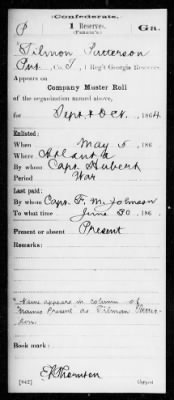 Confederate.
P 1 Reserve. Ga.
(Fannin's)
Tilmon Patterson
Pvt, Co. I, 1 Reg't Georgia Reserves.
Appears on
Company Muster Roll
of the organization named above,
for Sept & Oct, 1864
Enlisted:
When May 5, 186
Where Atlanta
By whom Capt. Hubert
Period War
Last paid:
By whom Capt. F. M. Johnson
To what time June 30, 186
Present or absent Present
Remarks:
*Name appears in column of
Names Present as Tilman Patter-
son.
Book mark:
Thornton
(642) Copyist